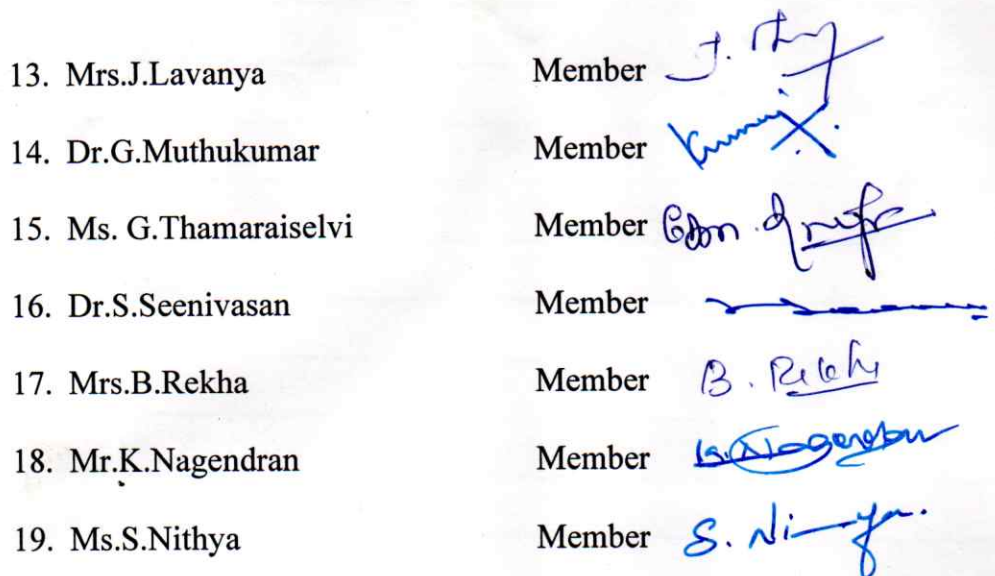 13. Mrs.J.Lavanya Member J.
14. Dr.G.Muthukumar Member Kumar
15. Ms. G.Thamaraiselvi Member
16. Dr.S.Seenivasan Member
17. Mrs.B.Rekha Member B. Rekha
18. Mr.K.Nagendran Member K. Nagendran
19. Ms.S.Nithya Member S. Ni